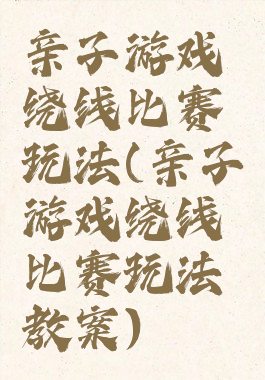 亲子游戏
绕线比赛
玩法(亲子
游戏绕线
比赛玩法
教案)